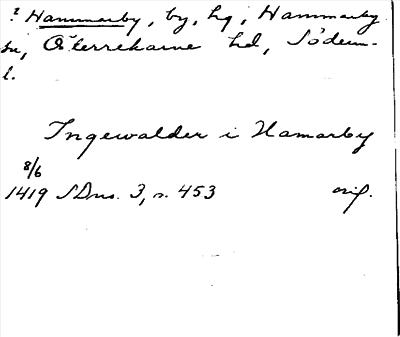 ? Hammarby, by, hg, Hammarby
sn, Österrekarne hd, Söderm-
l.
Ingewalder i Hamarby
8/6
1419 SDns. 3, s. 453 orig.